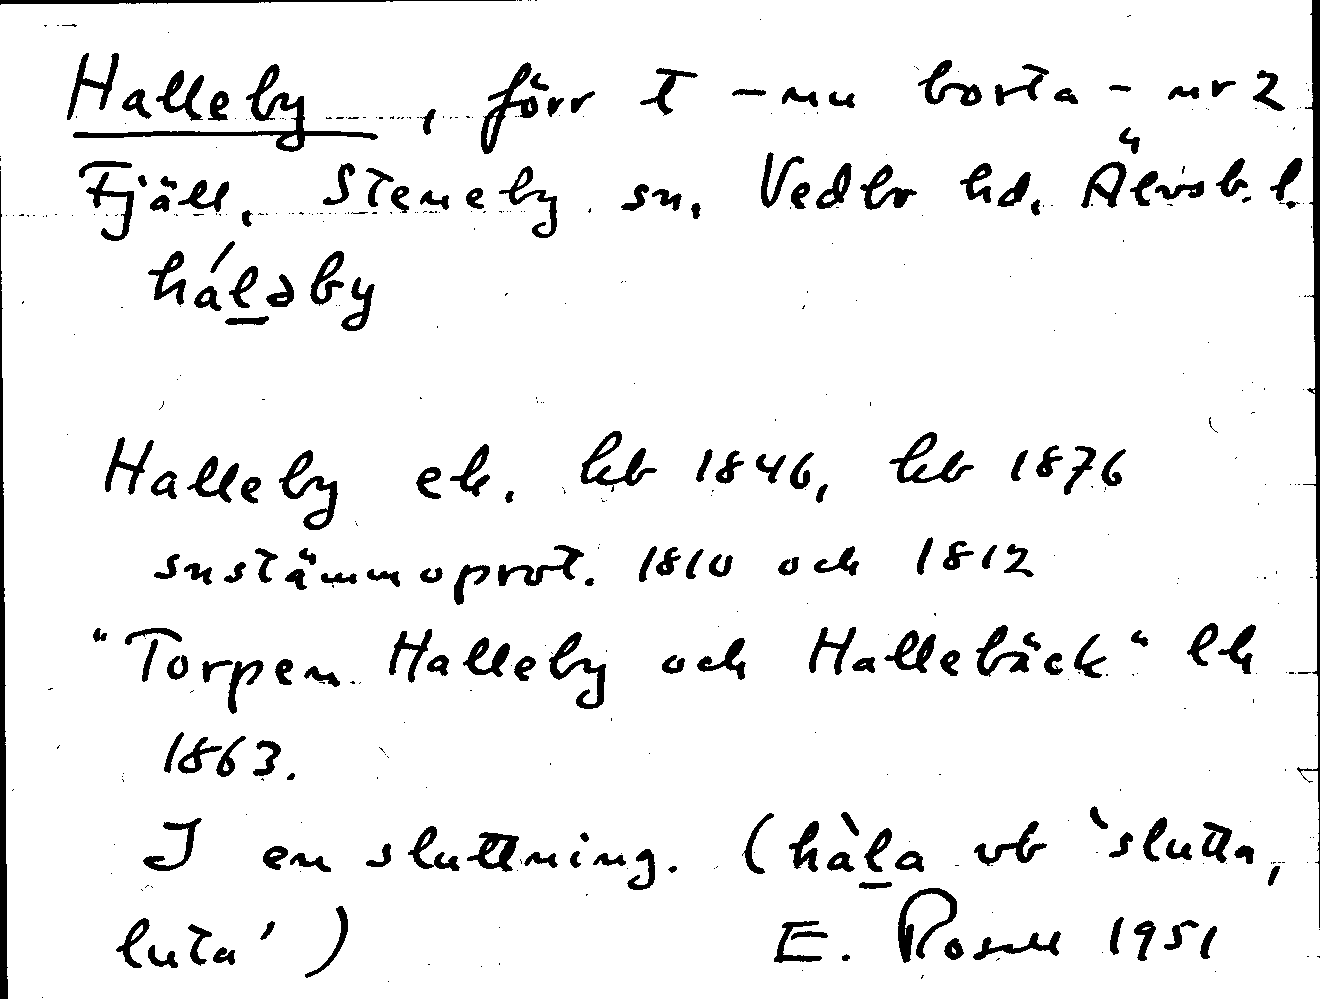 Halleby, förr t - nu borta - nr 2
Fjäll, Steneby sn, Vedbo hd, Älvsb. l.
hál̲əby
Halleby ek. kb 1846, kb 1876
snstämmoprot. 1810 och 1812
"Torpen Halleby och Hallebäck" lh
1863.
I en sluttning. (hàl̲a vb `slutta,
luta´) E. Rosell 1951